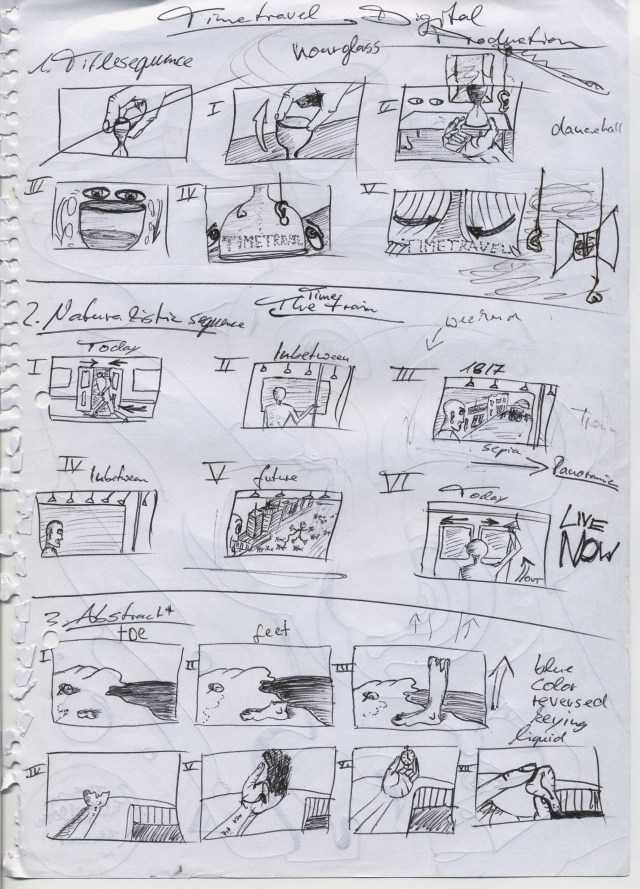 Timetravel Digital
Production
1. Titlesequence
hourglass
I
II
dancehall
III
IV
V
TIMETRAVEL
TIMETRAVEL
2. Naturalistic sequence
Time
The train
weekend
I
Today
II
Inbetween
III
1817
sepia
Panoramic
Train
IV
Inbetween
V
future
VI
Today
OUT
LIVE
NOW
3. Abstract
toe
feet
I
II
III
blue
color
reversed
keying
liquid
IV
V
VI
VII